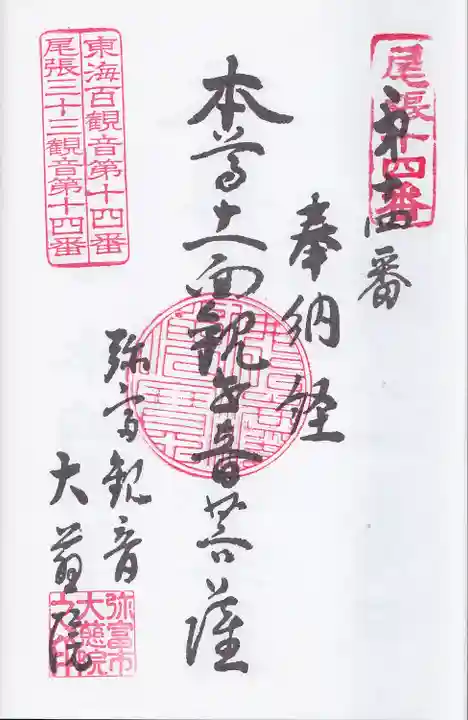 尾張十四番
第十四番
奉納経
本尊十一面観世音菩薩
弥富観音
大慈院
東海百観音第十四番
尾張三十三観音第十四番
弥富市
大慈院